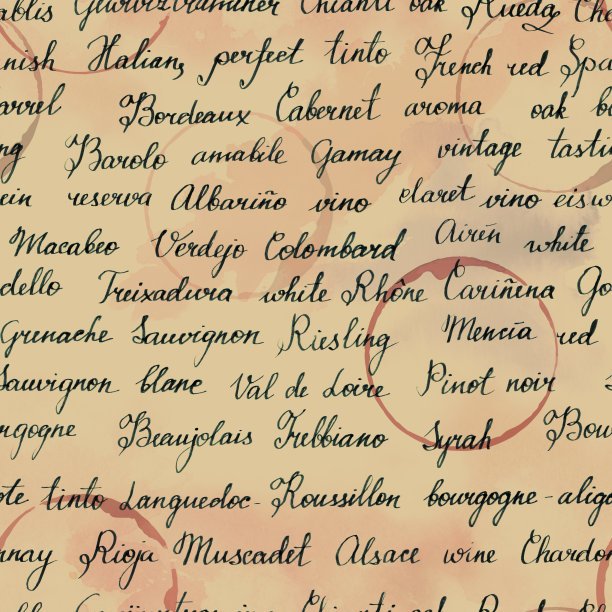 ablis Gewürztraminer Chianti oak Rueda Cha
nish Italian, perfect tinto French red Spa
arrel Bordeaux Cabernet aroma oak ba
ng Barolo amabile Gamay vintage tasti
ein reserva Albariño vino claret vino eisw
Macabeo Verdejo Colombard Airén white
dello Treixadura white Rhône Cariñena Go
Grenache Sauvignon Riesling Mencía red
Sauvignon blanc Val de Loire Pinot noir
rgogne Beaujolais Trebbiano Syrah Bou
ote tinto Languedoc-Roussillon bourgogne-aligo
nnay Rioja Muscadet Alsace wine Chardon